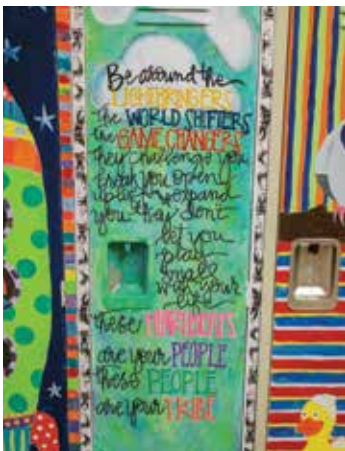 Be around the
LIGHTBRINGERS
the WORLD SHIFTERS
the GAME CHANGERS
they challenge you
break you open
uplift & expand
you they don't
let you
play
small
with your
life
these HEARTBEATS
are your PEOPLE
these PEOPLE
are your TRIBE